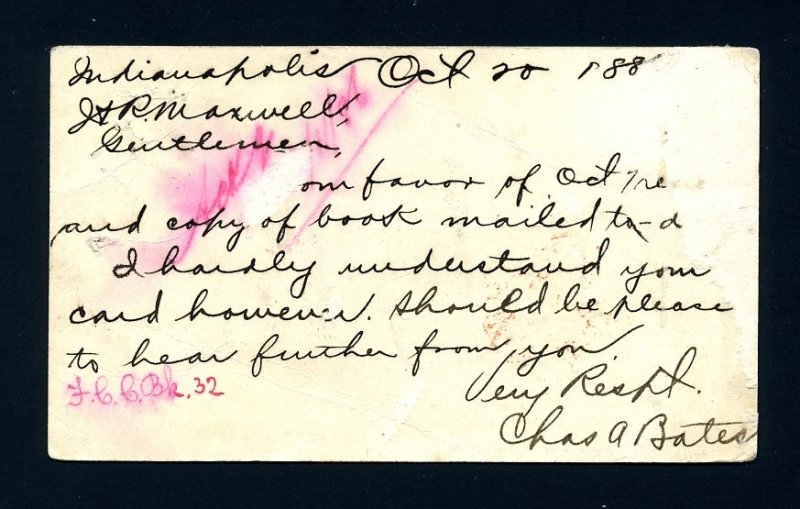 Indianapolis Oct 20 188
H.R. Maxwell,
Gentlemen,
our favor of Oct re
and copy of book mailed to-d
I hardly understand your
card however. Should be please
to hear further from you.
F.C.C. Bk. 32
Very Respt.
Chas A Bates